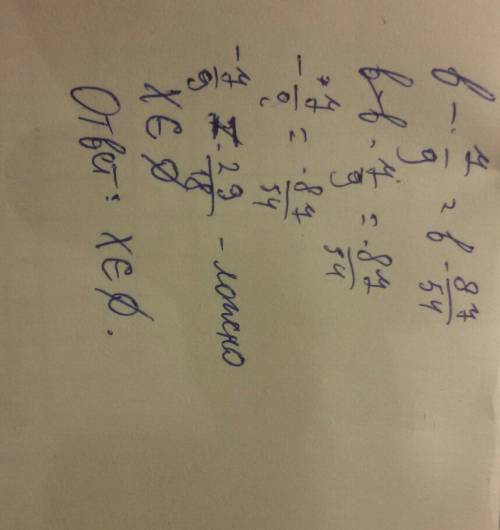 b - 7/9 = b - 87/54
b - b - 7/9 = - 87/54
- 7/9 = - 87/54
- 7/9 - 29/18 - ложно
X ∈ ∅
Ответ: X ∈ ∅.